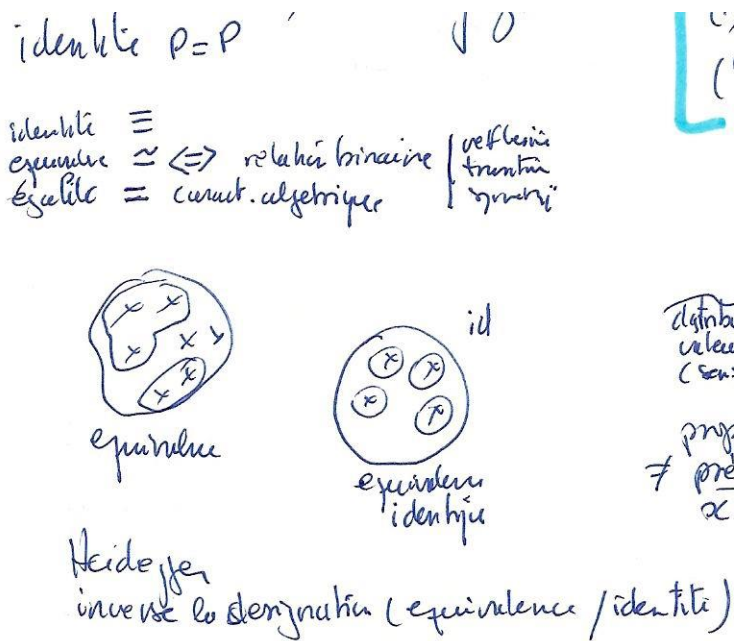 identité P=P
identité ≡
equivalence ≃ <=> relation binaire | reflexive
transitive
symetri
égalité = caract. algebrique
id
equivalence
equivalence
identique
distribu
valeu
(sens
prop
≠ pré
x
Heidegger
inverse la designation (equivalence / identité)